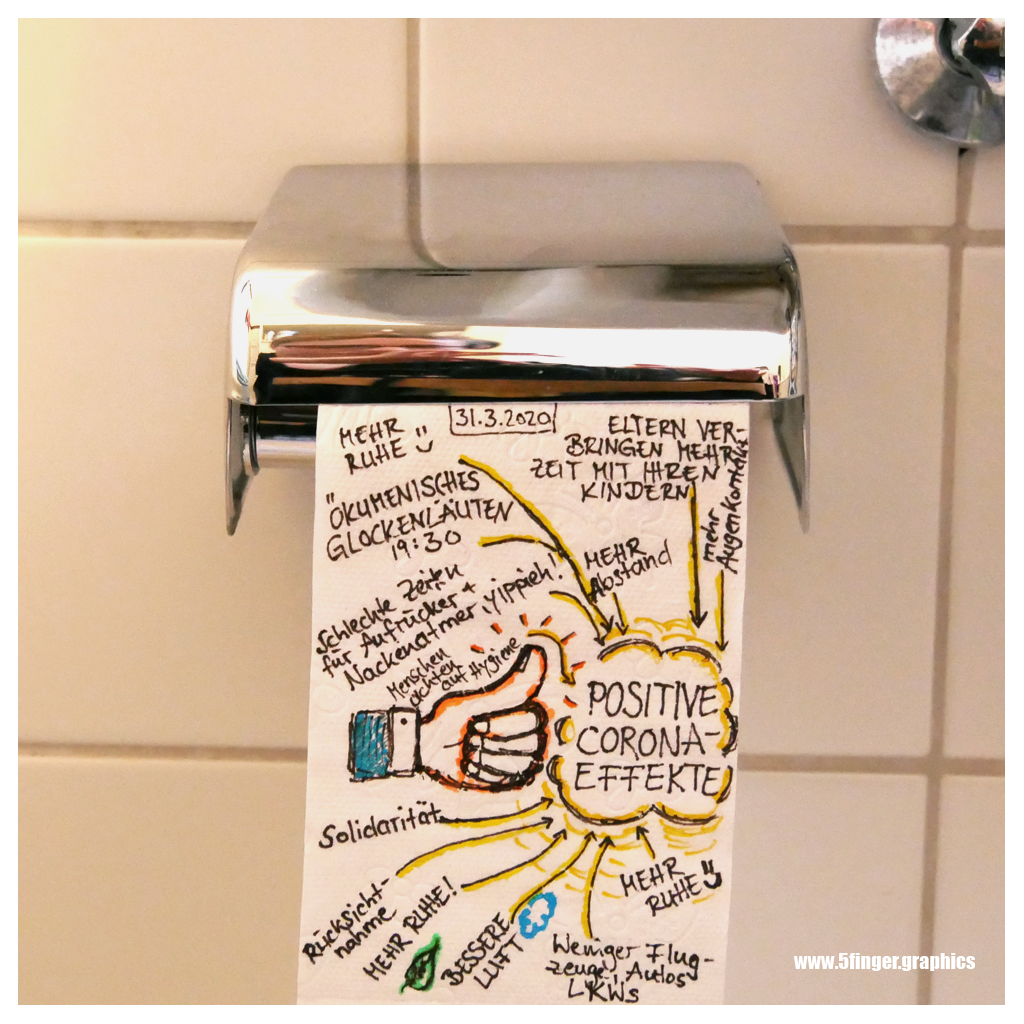 31.3.2020
MEHR
RUHE
ELTERN VER-
BRINGEN MEHR
ZEIT MIT IHREN
KINDERN
mehr
Augenkontakt
ÖKUMENISCHES
GLOCKENLÄUTEN
19:30
MEHR
Abstand
Schlechte Zeiten
für Aufrücker +
Nackenatmer, Yippieh!
Menschen
achten
auf Hygiene
POSITIVE
CORONA-
EFFEKTE
Solidarität
Rücksicht-
nahme
MEHR RUHE!
BESSERE
LUFT
Weniger Flug-
zeuge, Autos
LKWs
MEHR
RUHE
www.5finger.graphics